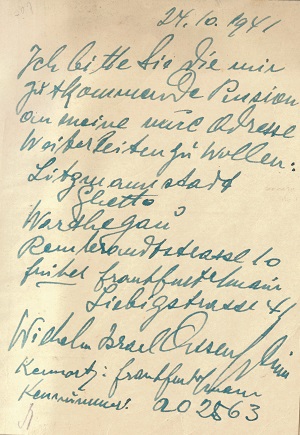 24.10.1941
Ich bitte Sie die mir
zustkommende Pension
an meine neue Adresse
Weiterleiten zu wollen:
Litzmannstadt
Ghetto
Warthegau
Rembrandtstrasse 10
früher Frankfurt/Main
Liebigstrasse 41
Wilhelm Israel
Kennort: Frankfurt/Main
Kennummer: a02563